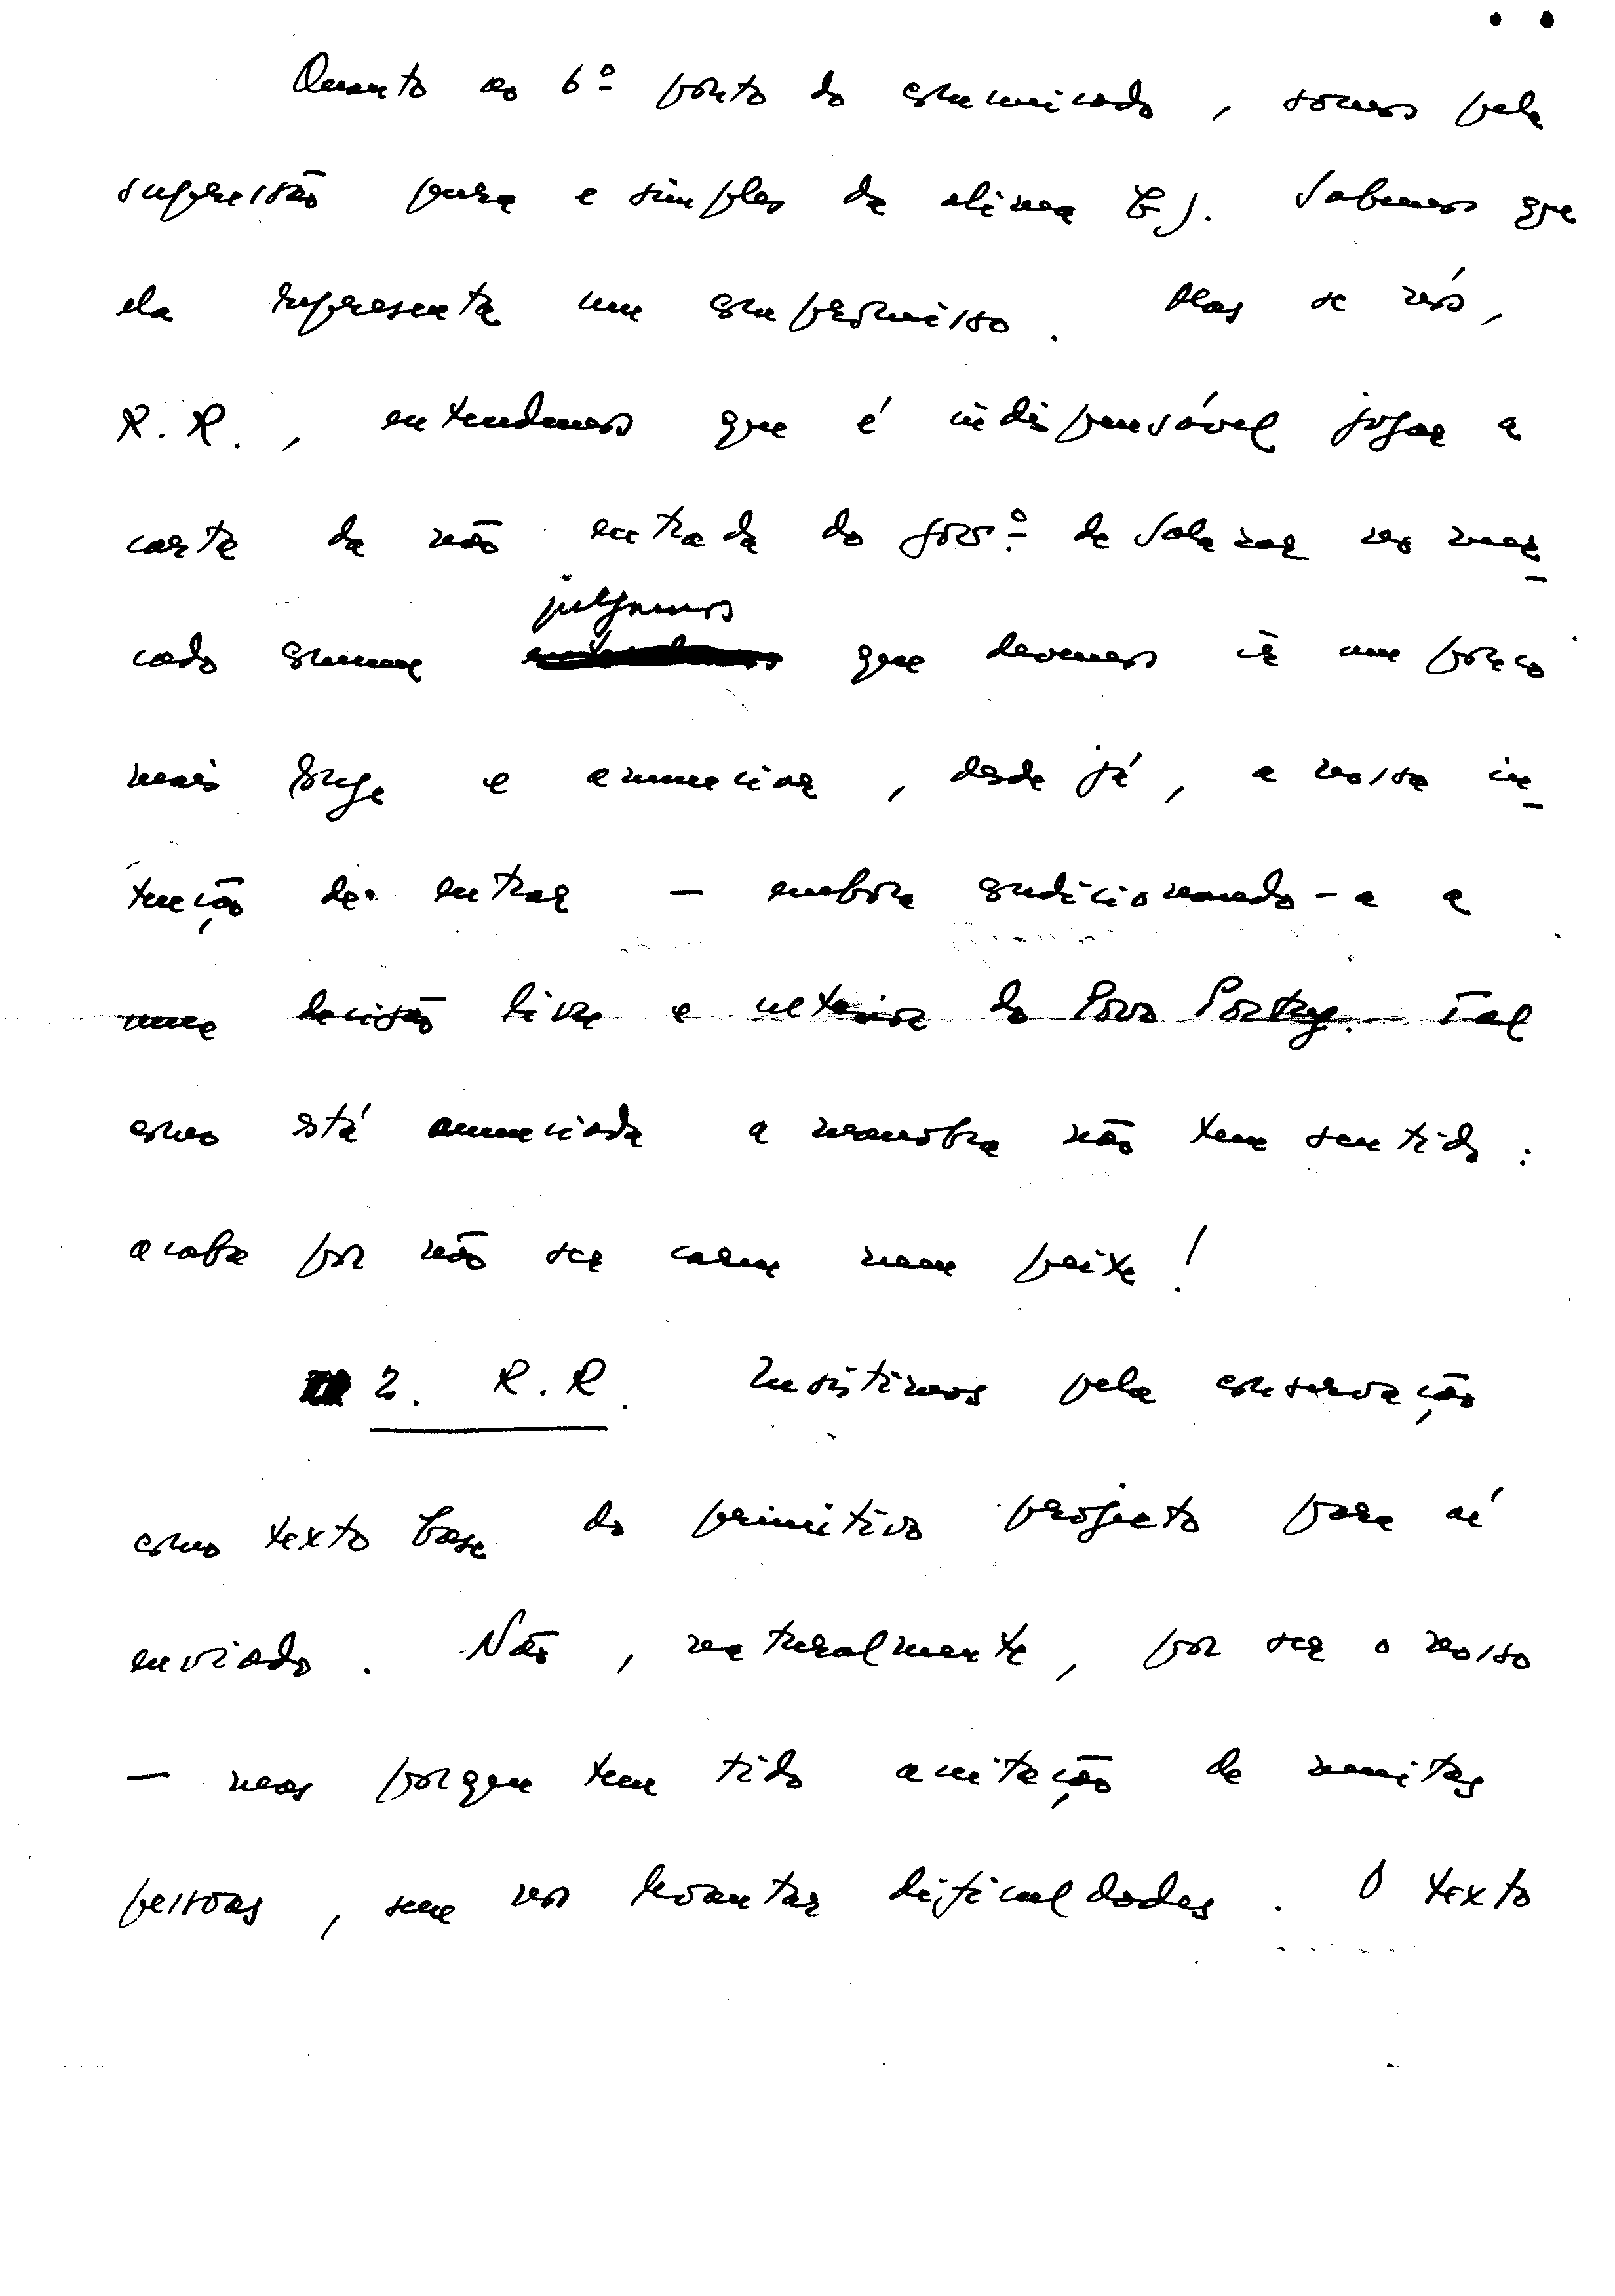 Quanto ao 6º ponto do comunicado, somos pela
supressão pura e simples da alínea b). Sabemos que
ela representa um compromisso. Mas se nós,
R.R., entendemos que é indispensável jogar a
carta da não entrada do govº. de Salazar no mer-
julgamos
cado comum que devemos ir um pouco
mais longe e anunciar, desde já, a nossa in-
tenção de entrar — embora condicionando-a a
uma decisão livre e ulterior do Povo Portug. Tal
como está anunciada a manobra não tem sentido:
acaba por não ser carne nem peixe!
2. R.R. Insistimos pela conservação
como texto base do primitivo projecto para aí
enviado. Não, naturalmente, por ser o nosso
— mas porque tem tido aceitação de muitas
pessoas, sem nos levantar dificuldades. O texto